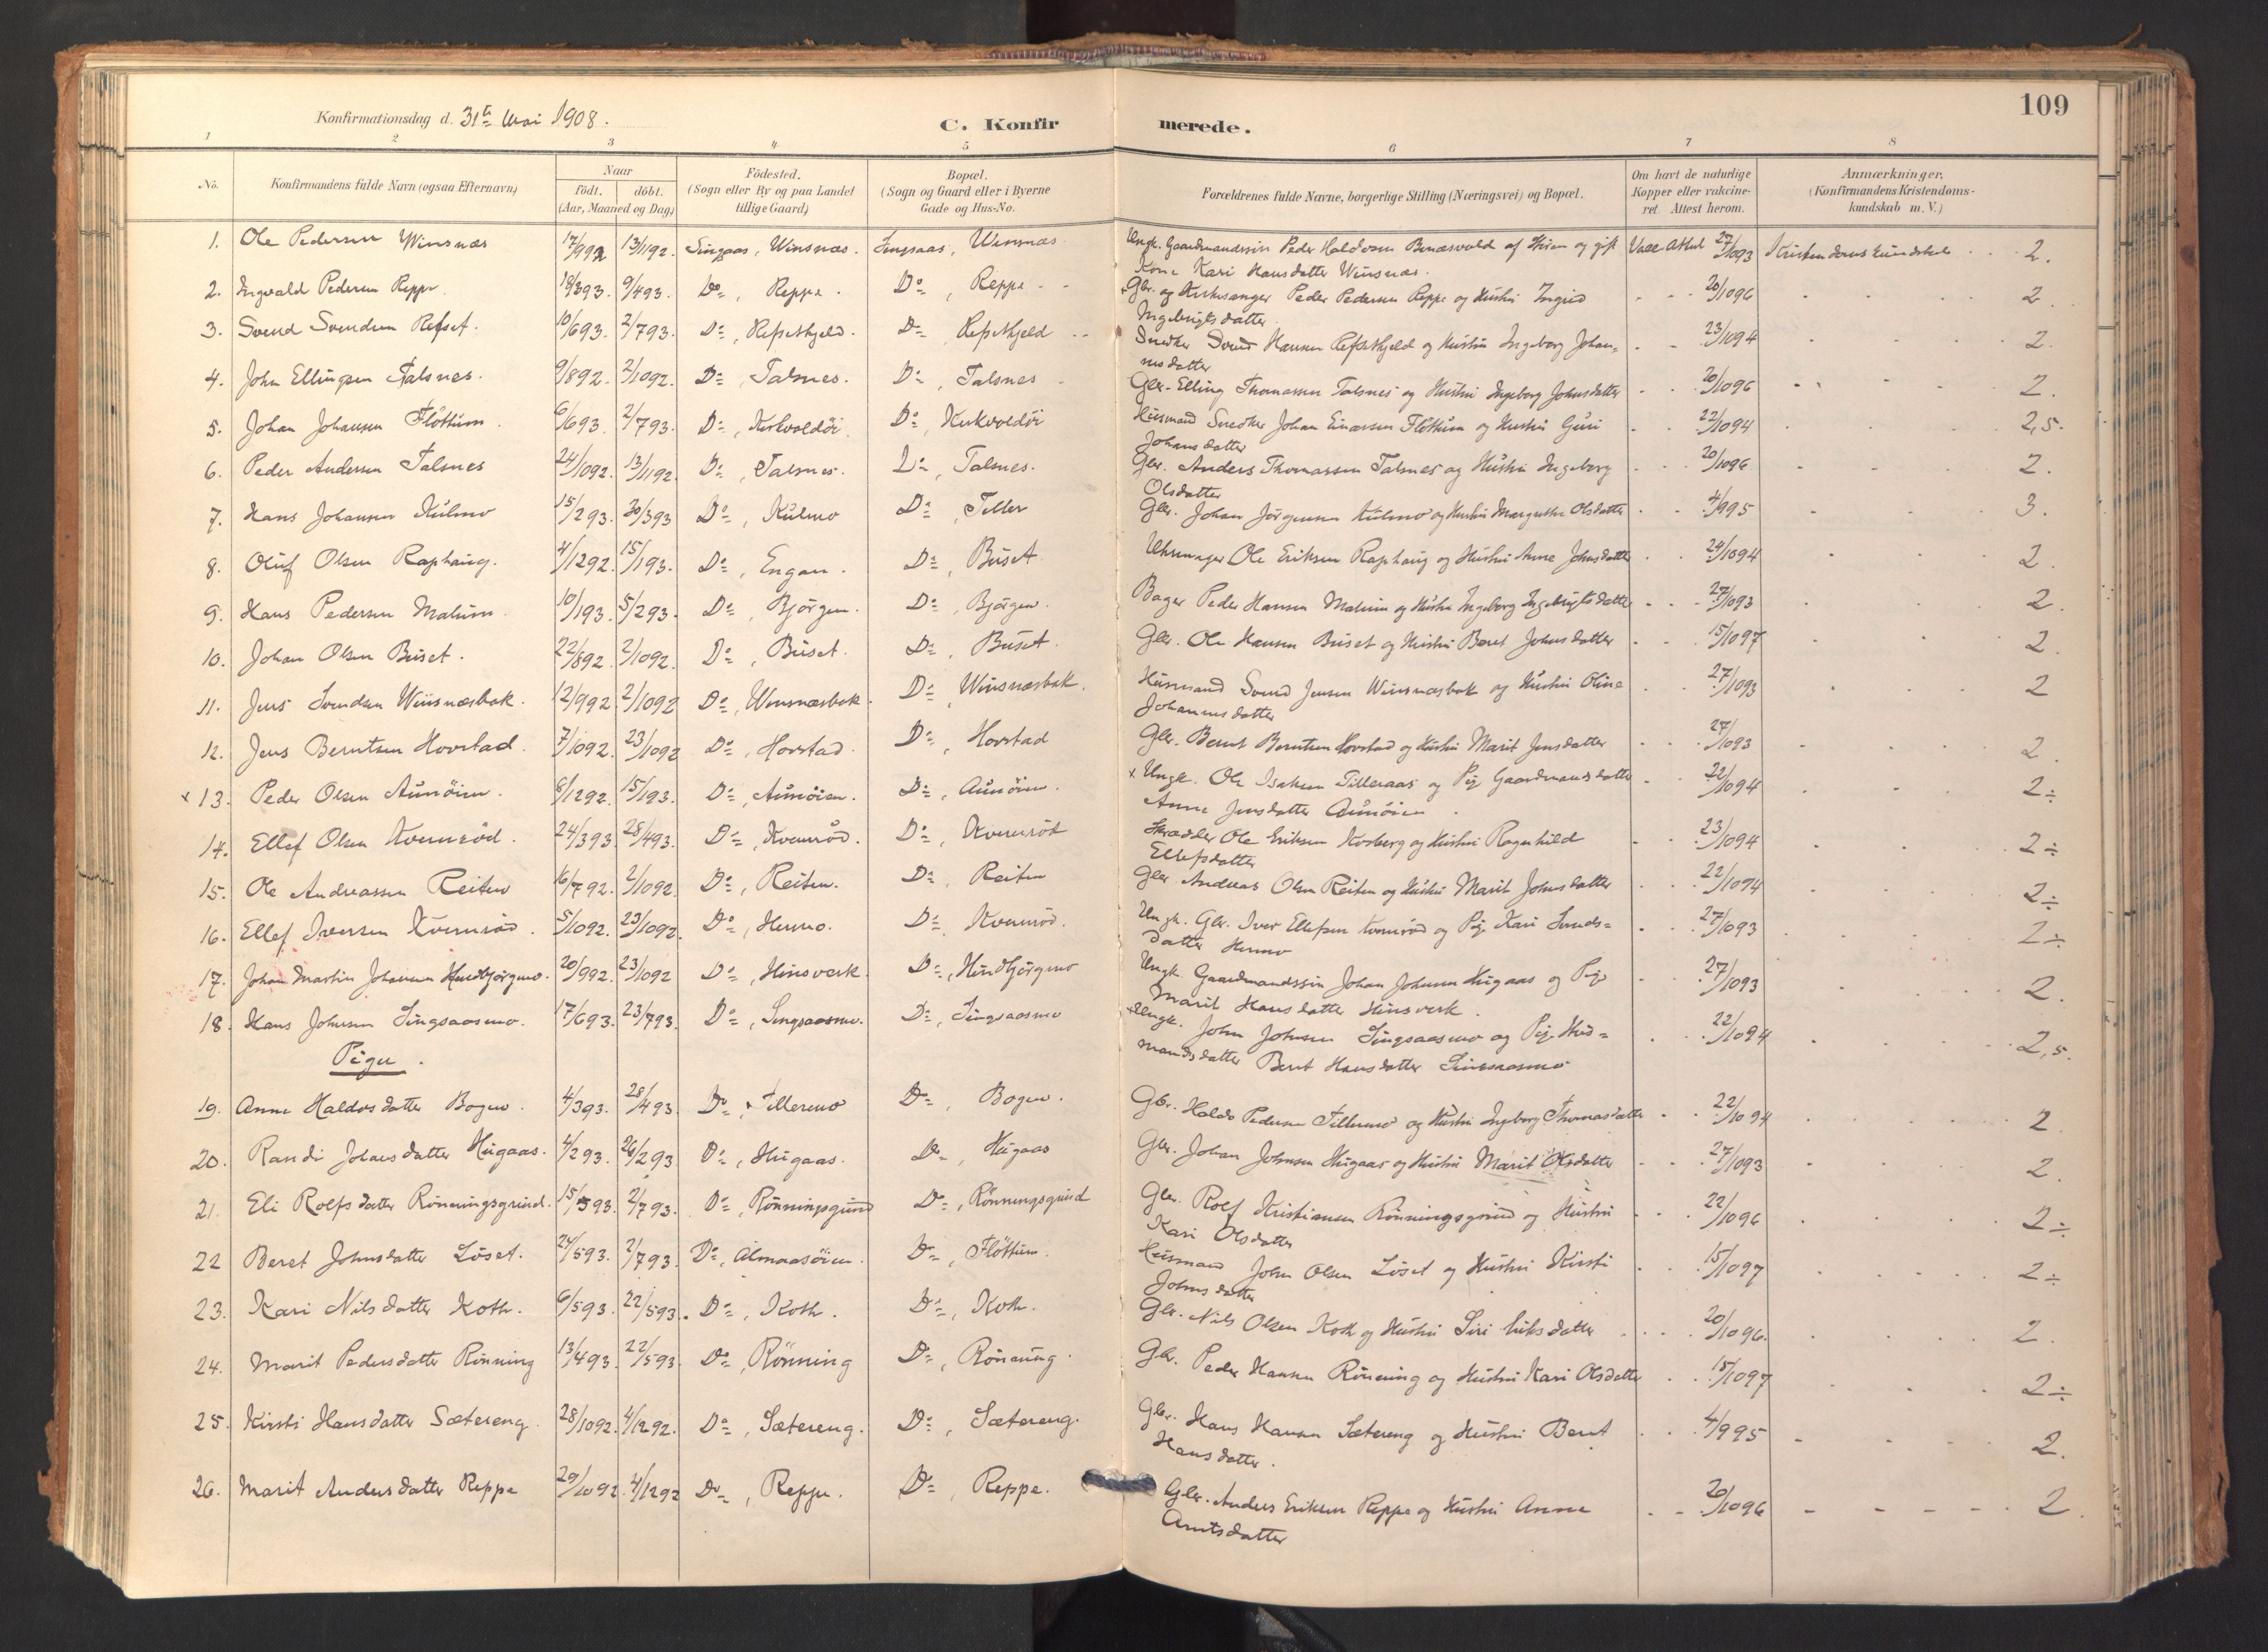 109
Konfirmationsdag d. 31te Mai 1908.
C. Konfirmerede.
1 2 3 4 5 6 7 8
No.
Konfirmandens fulde Navn (ogsaa Efternavn)
Naar
födt. döbt.
(Aar, Maaned og Dag)
Födested.
(Sogn eller By og paa Landet
tillige Gaard)
Bopæl.
(Sogn og Gaard eller i Byerne
Gade og Hus-No.
Forældrenes fulde Navne, borgerlige Stilling (Næringsvei) og Bopæl.
Om havt de naturlige
Kopper eller vakcine-
ret. Attest herom.
Anmærkninger.
(Konfirmandens Kristendoms-
kundskab m. V.)
1. Ole Pedersen Winsnæs 17/992 13/1192. Singsaas, Winsnæs. Singsaas, Winsnæs. Ungk. Gaardmandssön Peder Haldorsen af og gift 27/1093 2.
Kone Kari Hansdatter Winsnæs.
2. Ingvald Pedersen Reppe. 18/393. 9/493. Do, Reppe. Do, Reppe Gbr. og Kirkesanger Peder Pedersen Reppe og Hustru Ingrid 20/1096 2.
Ingebrigtsdatter.
3. Svend Svendsen Refset. 10/693. 2/793. Do, Refsethjeld. Do, Refsethjeld Snedker Svend Hansen Refsethjeld og Hustru Ingeborg Johan- 23/1094 2.
nesdatter
4. John Ellingsen Talsnes. 9/892. 2/1092. Do, Talsnes. Do, Talsnes Gbr. Elling Thomassen Talsnes og Hustru Ingeborg Johnsdatter 20/1096 2.
5. Johan Johansen Flöttum. 6/693. 2/793. Do, Kirkvoldöi. Do, Kirkvoldöi Husmand Snedker Johan Einarsen Flöttum og Hustru Guri 22/1094 2,5.
Johansdatter
6. Peder Andersen Talsnes 24/1092. 13/1192. Do, Talsnes. Do, Talsnes. Gbr. Anders Thomassen Talsnes og Hustru Ingeborg 20/1096 2.
Olsdatter
7. Hans Johansen Kulmo 15/293. 30/393 Do, Kulmo Do, Teller Gbr. Johan Jörgensen Kulmo og Hustru Margrethe Olsdatter 4/995 3.
8. Oluf Olsen Raphaug. 4/1292. 15/193. Do, Engan. Do, Buset Uhrmager Ole Eriksen Raphaug og Hustru Anne Johnsdatter 24/1094 2.
9. Hans Pedersen Malum. 10/193 5/293. Do, Bjørgen. Do, Bjørgen. Bager Peder Hansen Malum og Hustru Ingeborg Ingebrigtsdatter 27/1093 2.
10. Johan Olsen Buset. 22/892. 2/1092. Do, Buset. Do, Buset Gbr. Ole Hansen Buset og Hustru Beret Johnsdatter 15/1097 2.
11. Jens Svendsen Winsnæsbak. 12/992. 2/1092 Do, Winsnæsbak. Do, Winsnæsbak. Husmand Svend Jensen Winsnæsbak og Hustru Oline 27/1093 2
Johannesdatter
12. Jens Berntsen Hovstad. 7/1092. 23/1092 Do, Hovstad Do, Hovstad Gbr. Bernt Berntsen Hovstad og Hustru Marit Jensdatter 27/1093 2.
x 13. Peder Olsen Aunöien. 8/1292. 15/193. Do, Aunöien. Do, Aunöien. x Ungk. Ole Isaksen Tilleraas og Pig. Gaardmandsdatter 22/1094 2÷
Anne Jensdatter Aunöien.
14. Ellef Olsen Kvernröd. 24/393. 28/493. Do, Kvernröd. Do, Kvernröd Skrædder Ole Eriksen Kosberg og Hustru Ragnhild 23/1094 2÷
Ellefsdatter
15. Ole Andreassen Reiten 16/792. 2/1092. Do, Reiten. Do, Reiten Gbr. Andreas Olsen Reiten og Hustru Marit Johnsdatter 22/1094 2÷
16. Ellef Iversen Kvernröd. 5/1092. 23/1092. Do, Hermo. Do, Kvernröd. Ungk. Gbr. Iver Ellefsen Kvernröd og Pig. Kari 27/1093 2÷
datter Hermo
17. Johan Martin Johansen Hindbjørgmo. 20/992. 23/1092 Do, Hinsverk. Do, Hindbjørgmo Ungk. Gaardmandssön Johan Johnsen Hugaas og Pige 27/1093 2.
Marit Hansdatter Hinsverk.
18. Hans Johnsen Singsaasmo. 17/693. 23/793. Do, Singsaasmo. Do, Singsaasmo x Ungk. John Johnsen Singsaasmo og Pig. Hus- 22/1094 2,5.
mandsdatter Beret Hansdatter Singsaasmo
Piger.
19. Anne Haldosdatter Bogen. 4/393. 28/493. Do, Tilleremo Do, Bogen. Gbr. Haldo Pedersen Tilleremo og Hustru Ingeborg Thomasdatter 22/1094 2
20. Randi Johansdatter Hugaas. 4/293. 26/293 Do, Hugaas. Do, Hugaas Gbr. Johan Johnsen Hugaas og Hustru Marit Olsdatter 27/1093 2.
21. Eli Rolfsdatter Rönningsgrind. 15/593. 2/793. Do, Rönningsgrind Do, Rönningsgrind Gbr. Rolf Kristiansen Rönningsgrind og Hustru 22/1096 2÷
Kari Olsdatter
22 Beret Johnsdatter Löset. 24/593. 2/793. Do, Almaasöien. Do, Flöttum. Husmand John Olsen Löset og Hustru Kirsti 15/1097 2÷
Johnsdatter
23. Kari Nilsdatter Koth. 6/593. 22/593. Do, Koth. Do, Koth. Gbr. Nils Olsen Koth og Hustru Siri Eriksdatter 20/1096. 2.
24. Marit Pedersdatter Rönning 13/493. 22/593 Do, Rönning Do, Rönning. Gbr. Peder Hansen Rönning og Hustru Kari Olsdatter 15/1097 2÷
25. Kirsti Hansdatter Sætereng. 28/1092. 4/1292. Do, Sætereng. Do, Sætereng. Gbr. Hans Hansen Sætereng og Hustru Beret 4/995 2.
Hansdatter.
26. Marit Andersdatter Reppe 29/1092. 4/1292 Do, Reppe. Do, Reppe. Gbr. Anders Eriksen Reppe og Hustru Anne 20/1096 2.
Arntsdatter